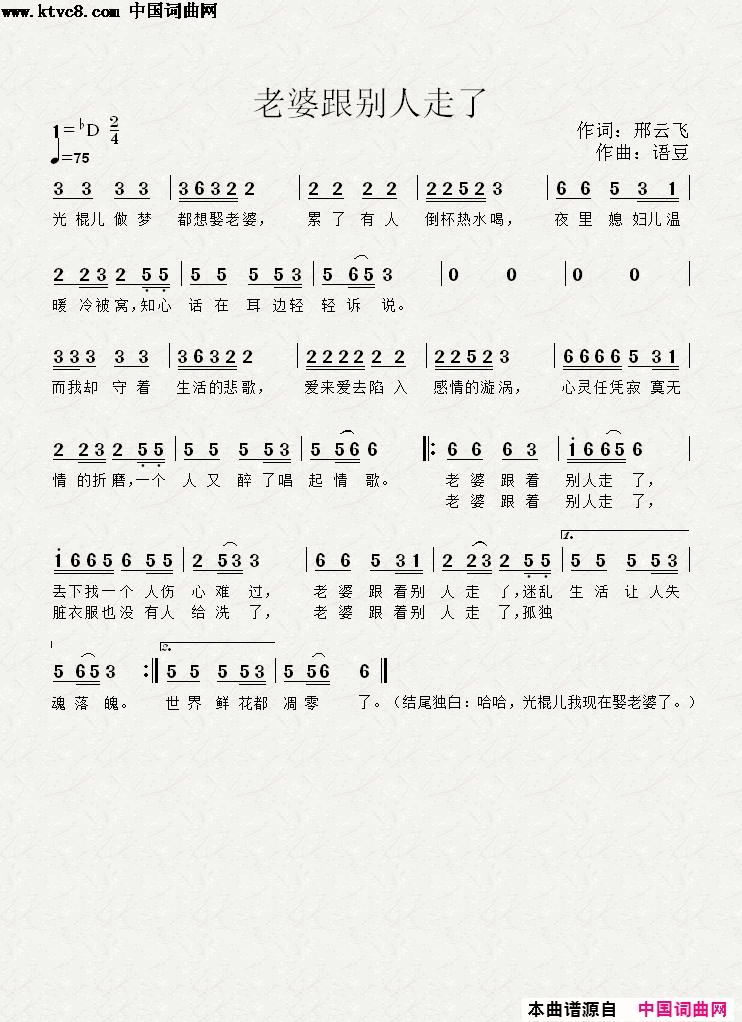 www.ktvc8.com 中国词曲网
老婆跟别人走了
1=♭D 2/4
♩=75
作词：邢云飞
作曲：语豆
3 3 3 3 | 3 6 3 2 2 | 2 2 2 2 | 2 2 5 2 3 | 6 6 5 3 1 |
光棍儿做梦 都想娶老婆， 累了有人 倒杯热水喝， 夜里媳妇儿温
2 2 3 2 5 5 | 5 5 5 5 3 | 5 6 5 3 | 0 0 | 0 0 |
暖冷被窝，知心 话在耳边轻 轻诉说。
3 3 3 3 3 | 3 6 3 2 2 | 2 2 2 2 2 | 2 2 5 2 3 | 6 6 6 6 5 3 1 |
而我却守着 生活的悲歌， 爱来爱去陷入 感情的漩涡， 心灵任凭寂寞无
2 2 3 2 5 5 | 5 5 5 5 3 | 5 5 6 6 ‖: 6 6 6 3 | i 6 6 5 6 |
情的折磨，一个 人又醉了唱 起情歌。 老婆跟着 别人走了，
老婆跟着 别人走了，
1.
i 6 6 5 6 5 5 | 2 5 3 3 | 6 6 5 3 1 | 2 2 3 2 5 5 | 5 5 5 5 3
丢下我一个人伤 心难过， 老婆跟着别 人走了，迷乱 生活让人失
脏衣服也没有人 给洗了， 老婆跟着别 人走了，孤独
2.
5 6 5 3 :‖ 5 5 5 5 3 | 5 5 6 6 ‖
魂落魄。 世界鲜花都 凋零了。（结尾独白：哈哈，光棍儿我现在娶老婆了。）
本曲谱源自 中国词曲网